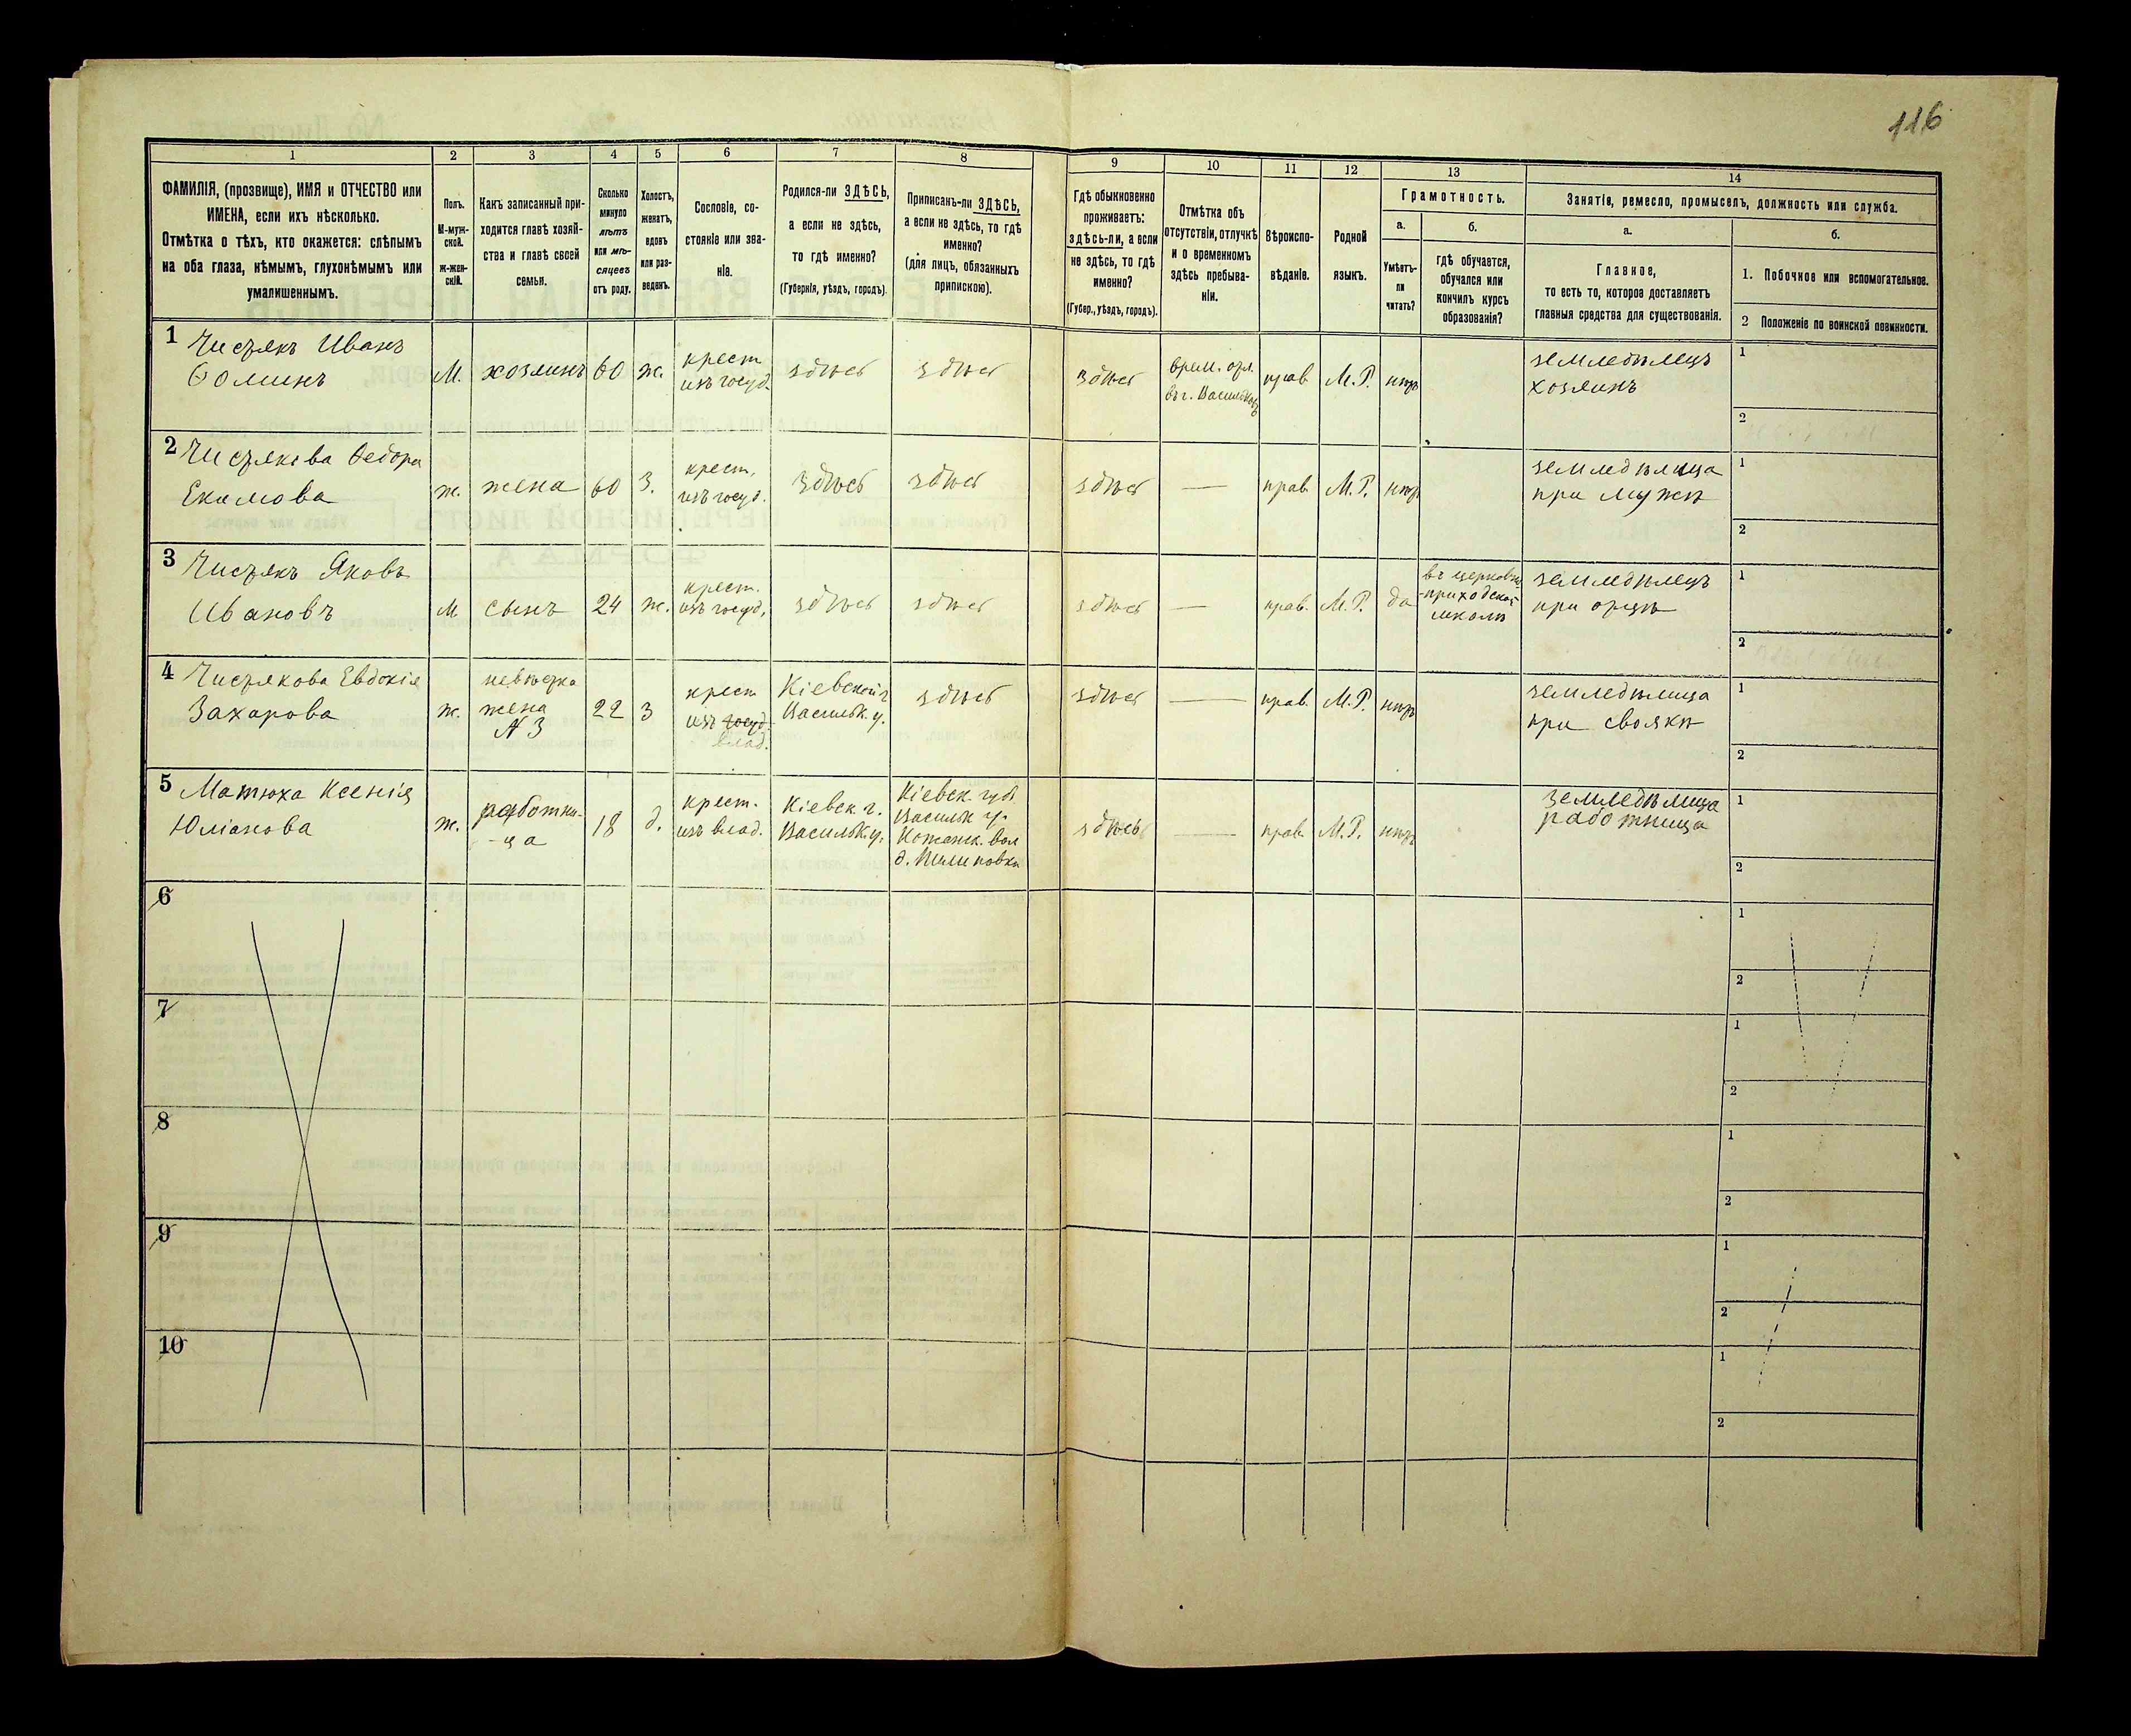 116
1
2
3
4
5
6
7
8
9
10
11
12
13
14
ФАМИЛІЯ, (прозвище), ИМЯ и ОТЧЕСТВО или
ИМЕНА, если ихъ нѣсколько.
Отмѣтка о тѣхъ, кто окажется: слѣпымъ
на оба глаза, нѣмымъ, глухонѣмымъ или
умалишеннымъ.
Полъ.
М-муж-
ской.
ж-жен-
скій.
Какъ записанный при-
ходится главѣ хозяй-
ства и главѣ своей
семьи.
Сколько
минуло
лѣтъ
или мѣ-
сяцевъ
отъ роду.
Холостъ,
женатъ,
вдовъ
или раз-
веденъ.
Сословіе, со-
стояніе или зва-
ніе.
Родился-ли ЗДѢСЬ,
а если не здѣсь,
то гдѣ именно?
(Губернія, уѣздъ, городъ).
Приписанъ-ли ЗДѢСЬ,
а если не здѣсь, то гдѣ
именно?
(для лицъ, обязанныхъ
припискою).
Гдѣ обыкновенно
проживаетъ:
здѣсь-ли, а если
не здѣсь, то гдѣ
именно?
(Губер., уѣздъ, городъ).
Отмѣтка объ
отсутствіи, отлучкѣ
и о временномъ
здѣсь пребыва-
ніи.
Вѣроиспо-
вѣданіе.
Родной
языкъ.
Грамотность.
а.
Умѣетъ-
ли
читать?
б.
гдѣ обучается,
обучался или
кончилъ курсъ
образованія?
Занятіе, ремесло, промыселъ, должность или служба.
а.
Главное,
то есть то, которое доставляетъ
главныя средства для существованія.
б.
1. Побочное или вспомогательное.
2 Положеніе по воинской повинности.
1 Чистякъ Иванъ
Ѳоминъ
М.
хозяинъ
60
ж.
крест
изъ госуд.
здѣсь
здѣсь
здѣсь
врем. отл.
въ г. Васильковъ
прав.
М.Р.
нѣтъ
земледѣлецъ
хозяинъ
1
2
2 Чистякова Ѳедора
Екимова
ж.
жена
60
З.
крест.
изъ госуд.
здѣсь
здѣсь
здѣсь
—
прав.
М.Р.
нѣтъ
земледѣлица
при мужѣ
1
2
3 Чистякъ Яковъ
Ивановъ
М
сынъ
24
ж.
крест.
изъ госуд.
здѣсь
здѣсь
здѣсь
—
прав.
М.Р.
да
въ церковно
-приходской
школѣ
земледѣлецъ
при отцѣ
1
2
4 Чистякова Евдокія
Захарова
ж.
невѣстка
жена
N 3
22
З
крест
изъ госуд.
влад.
Кіевской г.
Васильк. у.
здѣсь
здѣсь
—
прав.
М.Р.
нѣтъ
земледѣлица
при свояки
1
2
5 Матюха Ксенія
Юліанова
ж.
работни-
-ца
18
д.
крест.
изъ влад.
Кіевск. г.
Васильк. у.
Кіевск. губ.
Васильк у.
Кожанк. вол
д. Пилиповки
здѣсь
—
прав.
М.Р.
нѣтъ
земледѣлица
работница
1
2
6
1
2
7
1
2
8
1
2
9
1
2
10
1
2